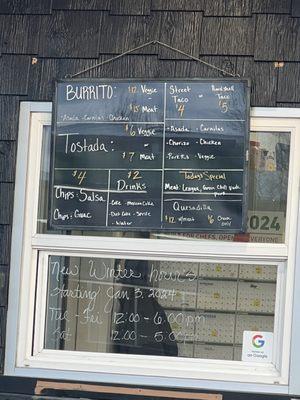 BURRITO: $12 Veggie
$15 Meat
-Asada -Carnitas -Chicken
Street Taco - $4
Hardshell Taco $5
-Asada -Carnitas
-Chorizo -Chicken
-Veggie
Tostada: $6 Veggie
$7 Meat
$4
Chips & Salsa
Chips & Guac
$2
DRINKS
-Coke -Mexican Coke
-Diet Coke -Sprite
-Water
Today's Special
Meat: Lengua, Green Chili Pork
Quesadilla
$12 w/meat $6 Cheese only
2024
FOR CHEFS. EVERYONE
New Winter Hours
Starting Jan 3, 2024
Tue - Fri 12:00 - 6:00 pm
Sat 12:00 - 5:00 pm
G
Google